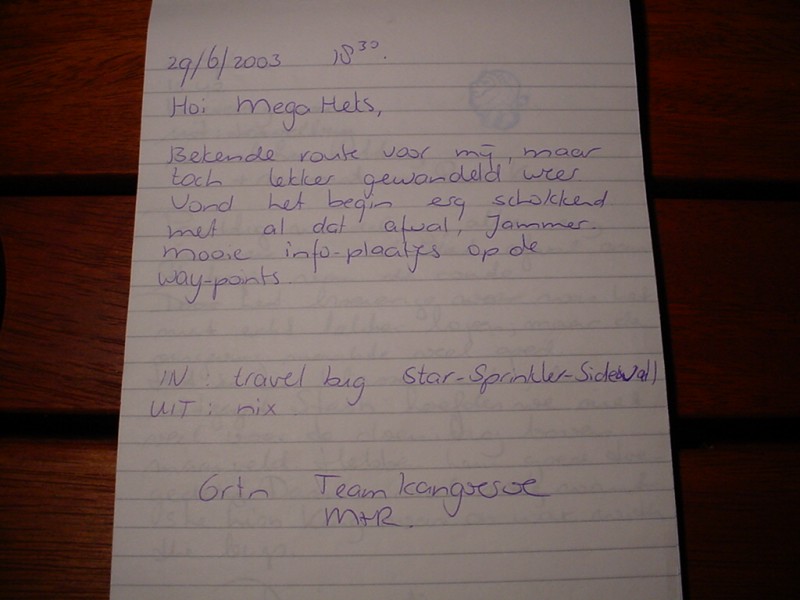 29/6/2003 18³⁰.
Hoi Mega Hets,
Bekende route voor mij, maar
toch lekker gewandeld weer.
Vond het begin erg schokkend
met al dat afval, Jammer.
mooie info-plaatjes op de
way-points.
IN : travel bug Star-Sprinkler-Sidewall
UIT : nix
Grtn Team kangoeroe
M+R.